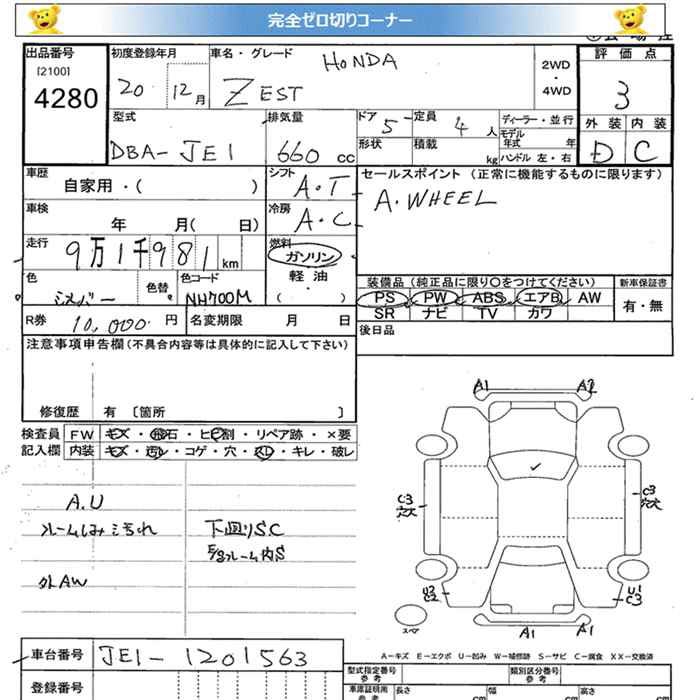 完全ゼロ切りコーナー
出品番号
[2100]
4280
初度登録年月
20 12月
車名・グレード
HONDA
ZEST
2WD
・
4WD
評価点
3
外装 内装
D C
型式
DBA-JE1
排気量
660 cc
ドア 5
形状
定員 4 人
積載 kg
ディーラー・並行
モデル年式 年
ハンドル 左・右
車歴
自家用・( )
シフト
A・T
セールスポイント (正常に機能するものに限ります)
A.WHEEL
車検
年 月( 日)
冷房
A・C
走行
9万1千981 km
燃料
ガソリン
・
軽油
・
( )
色
シルバー
色替
色コード
NH700M
装備品 (純正品に限り〇をつけてください)
PS PW ABS エアB AW
SR ナビ TV カワ
新車保証書
有・無
R券 10,000 円
名変期限 月 日
後日品
注意事項申告欄 (不具合内容等は具体的に記入して下さい)
修復歴 有 [箇所 ]
検査員
記入欄
FW キズ・飛石・ヒビ割・リペア跡・×要
内装 キズ・汚レ・コゲ・穴・スレ・キレ・破レ
A.U
下廻りSC
外AW
A1 A2
C3 C3
U2 U1
C2 C3
スペア
A1 A1
A−キズ E−エクボ U−凹み W−補修跡 S−サビ C−腐食 XX−交換済
車台番号 JE1-1201563
登録番号
型式指定番号
参考
類別区分番号
参考
車庫証明用
参考
長さ cm
幅 cm
高さ cm